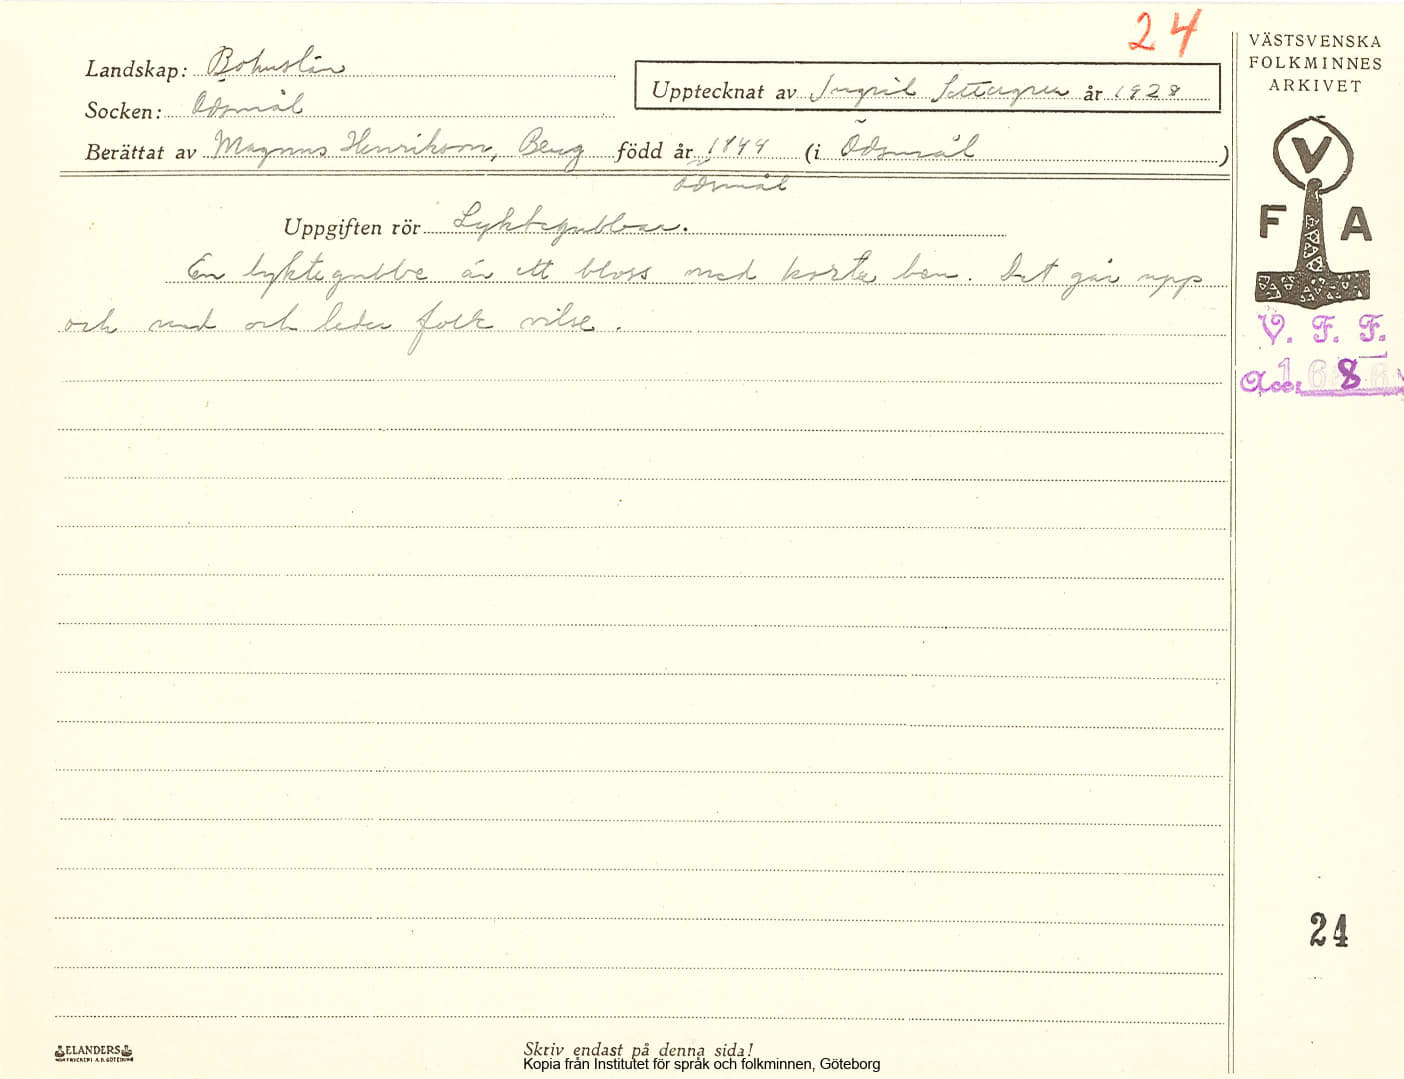 24
VÄSTSVENSKA
FOLKMINNES
ARKIVET
Landskap: Bohuslän
Upptecknat av Ingrid år 1928
Socken: Ödsmål
Berättat av Magnus Henrikson, Berg född år 1844 (i Ödsmål )
Ödsmål
V
F A
Uppgiften rör Lyktegubbar.
En lyktegubbe är ett bloss med korta ben. Det går upp
och ned och leder folk vilse.
V. F. F.
Acc. 168
24
ELANDERS
Skriv endast på denna sida!
Kopia från Institutet för språk och folkminnen, Göteborg